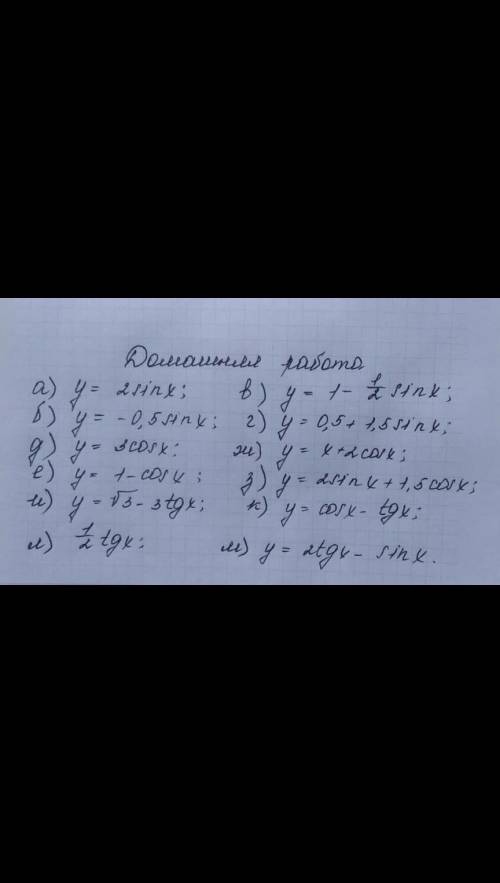 Домашняя работа
а) y = 2sinx; в) y = 1 - 1/2 sinx;
б) y = -0,5sinx; г) y = 0,5 + 1,5sinx;
д) y = 3cosx; ж) y = x + 2cosx;
е) y = 1 - cosx; з) y = 2sinx + 1,5cosx;
и) y = √3 - 3tgx; к) y = cosx - tgx;
л) 1/2 tgx; м) y = 2tgx - sinx.